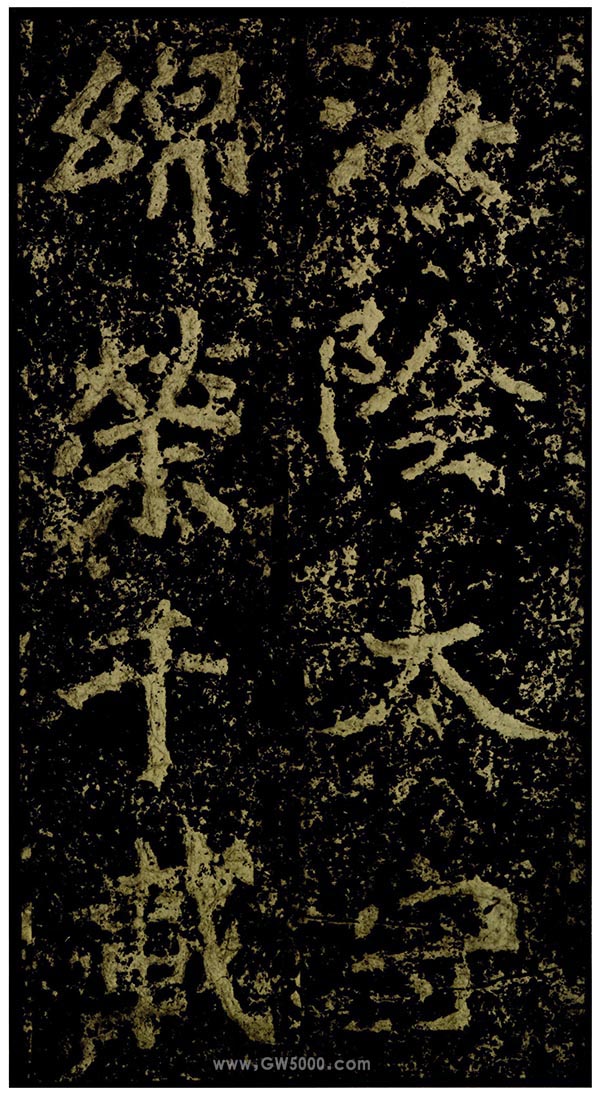 汝陰太守
綿榮千載
www.GW5000.com